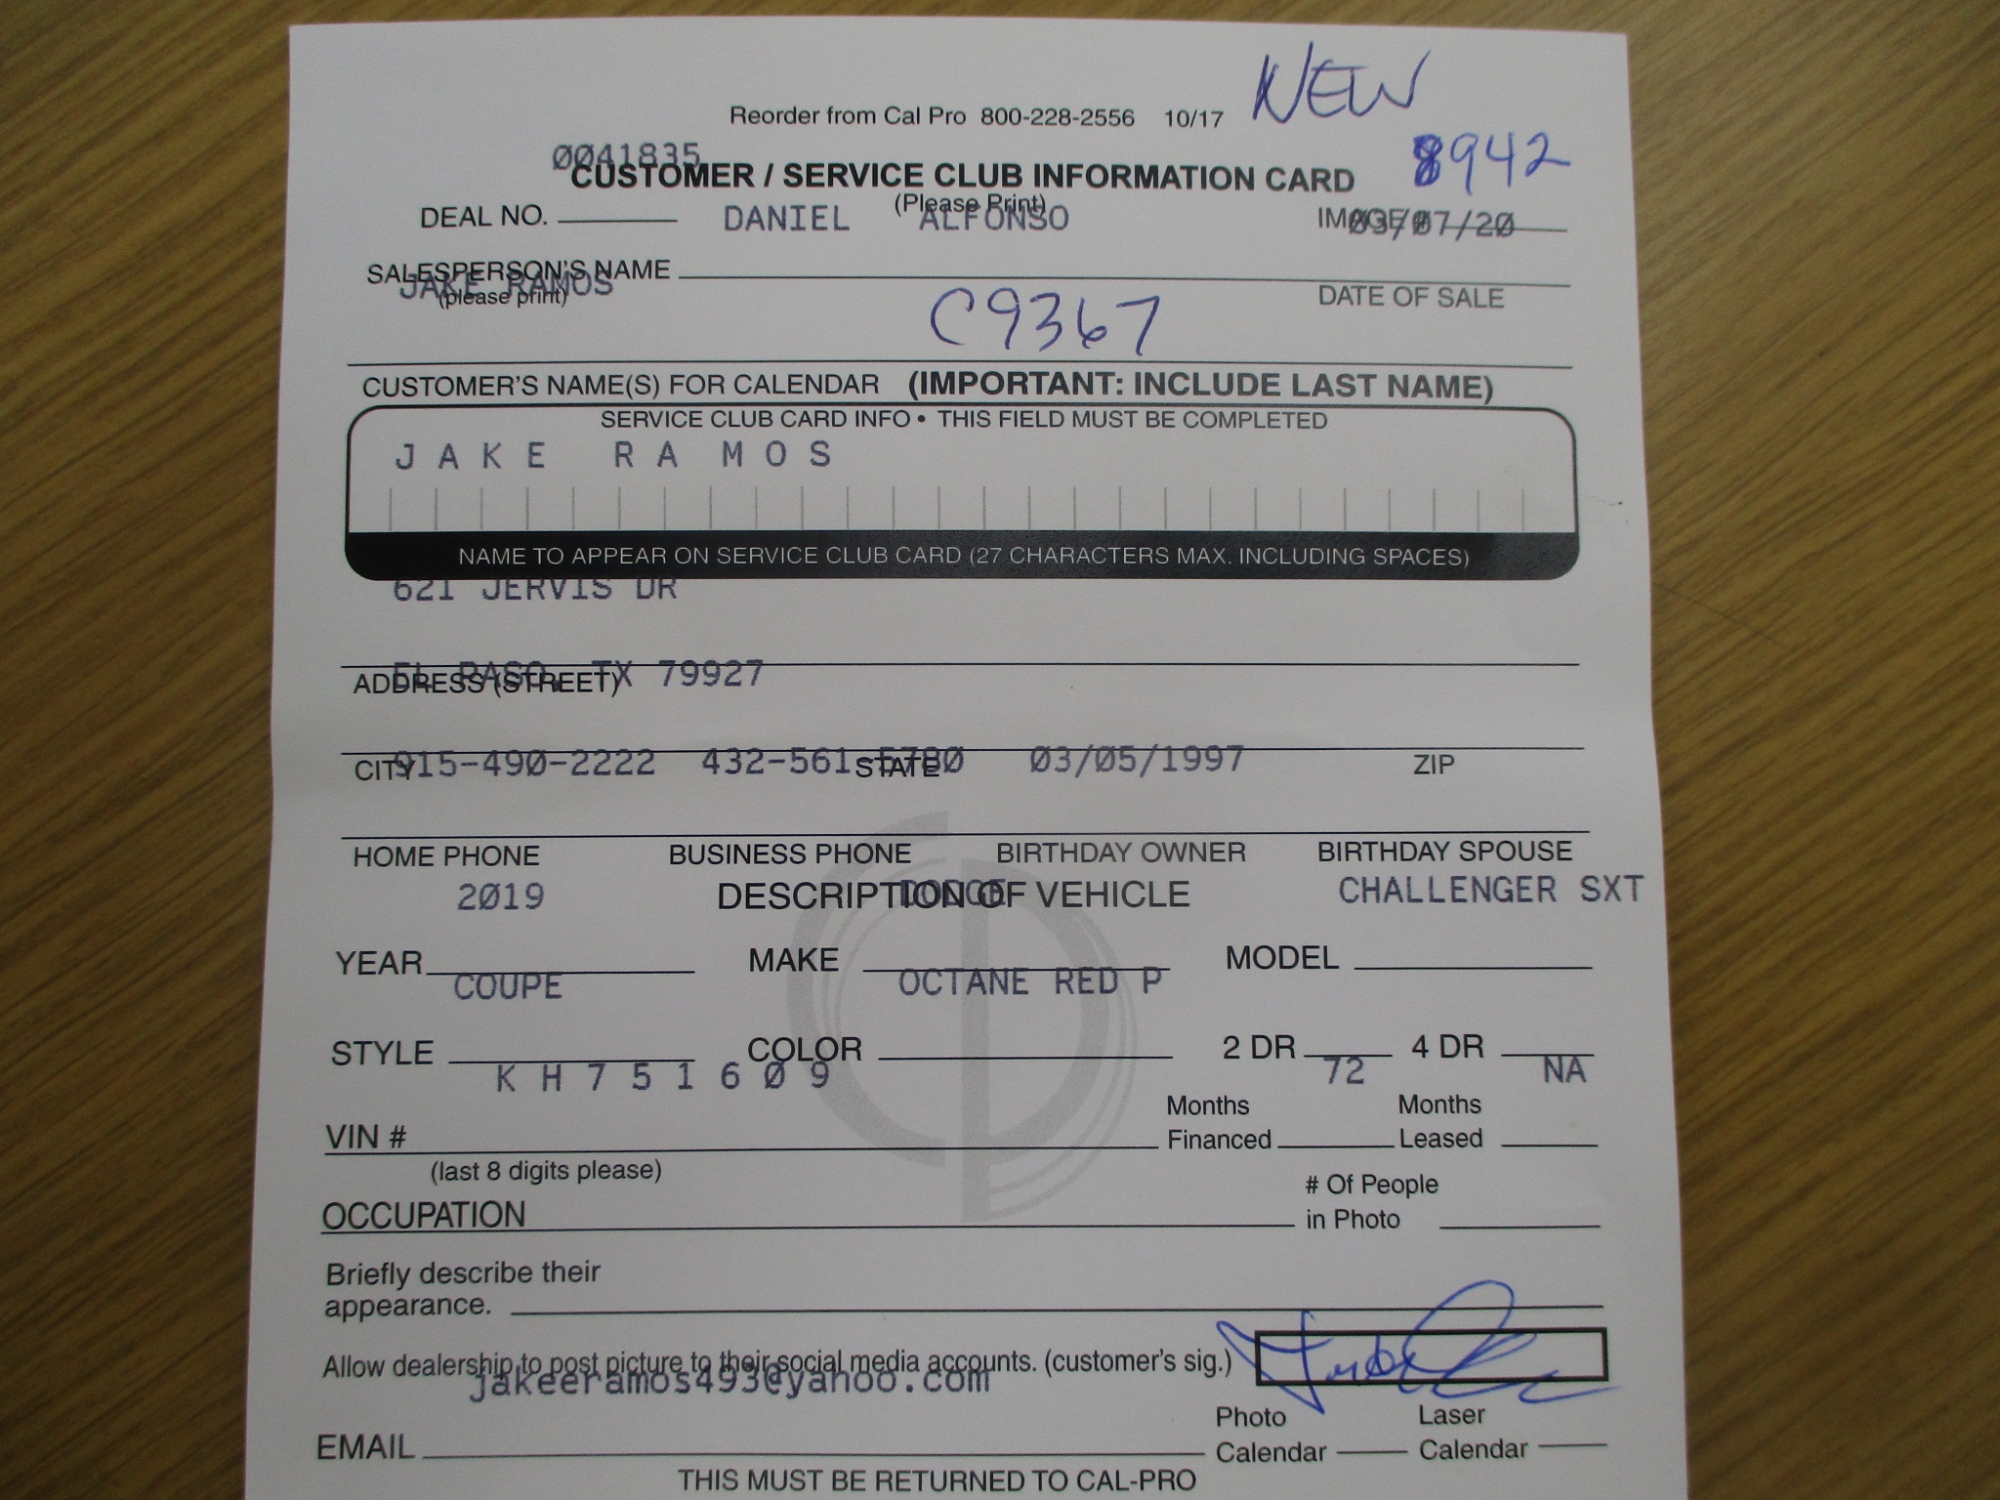 NEW
Reorder from Cal Pro 800-228-2556 10/17
0041835
8942
CUSTOMER / SERVICE CLUB INFORMATION CARD
(Please Print)
DEAL NO. DANIEL ALFONSO IMAGE # 03/07/20
SALESPERSON'S NAME
JAKE RAMOS
(please print)
DATE OF SALE
C9367
CUSTOMER'S NAME(S) FOR CALENDAR (IMPORTANT: INCLUDE LAST NAME)
SERVICE CLUB CARD INFO • THIS FIELD MUST BE COMPLETED
JAKE RAMOS
NAME TO APPEAR ON SERVICE CLUB CARD (27 CHARACTERS MAX. INCLUDING SPACES)
621 JERVIS DR
EL PASO, TX 79927
ADDRESS (STREET)
915-490-2222 432-561-5780 03/05/1997
CITY STATE ZIP
HOME PHONE BUSINESS PHONE BIRTHDAY OWNER BIRTHDAY SPOUSE
2019 DODGE CHALLENGER SXT
DESCRIPTION OF VEHICLE
YEAR MAKE MODEL
COUPE OCTANE RED P
STYLE COLOR 2 DR 4 DR
KH751609 72 NA
VIN # Months Financed Months Leased
(last 8 digits please)
OCCUPATION # Of People in Photo
Briefly describe their
appearance.
Allow dealership to post picture to their social media accounts. (customer's sig.)
jakeeramos493@yahoo.com
EMAIL Photo Calendar Laser Calendar
THIS MUST BE RETURNED TO CAL-PRO